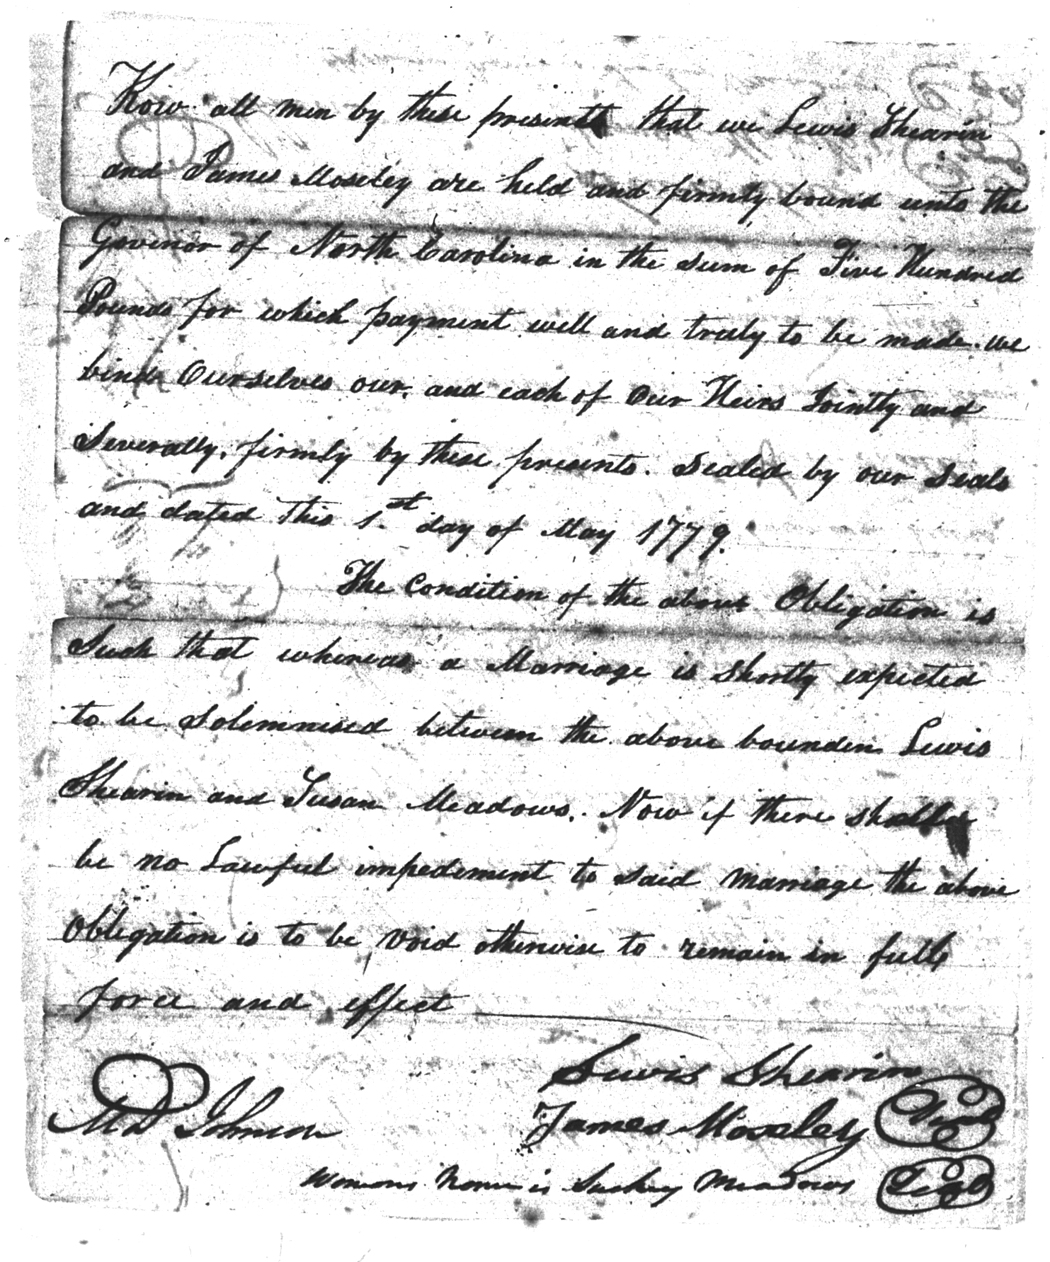 Know all men by these presents that we Lewis Shearin
and James Moseley are held and firmly bound unto the
Govinor of North Carolina in the sum of Five Hundred
Pounds for which payment well and truly to be made. we
bind Ourselves our, and each of Our Heirs Jointly and
Severally, firmly by these presents. Sealed by our Seals
and dated This 1.st day of May 1779.
The Condition of the above Obligation is
Such that whereas a Marriage is Shortly expected
to be Solemnised between the above bounden Lewis
Shearin and Susan Meadows. Now if there shall
be no Lawful impediment to said marriage the above
Obligation is to be Void otherwise to remain in full
force and effect
Lewis Shearin
James Moseley Seal
MD Johnson
Womans Name is Suckey Meadows Seal